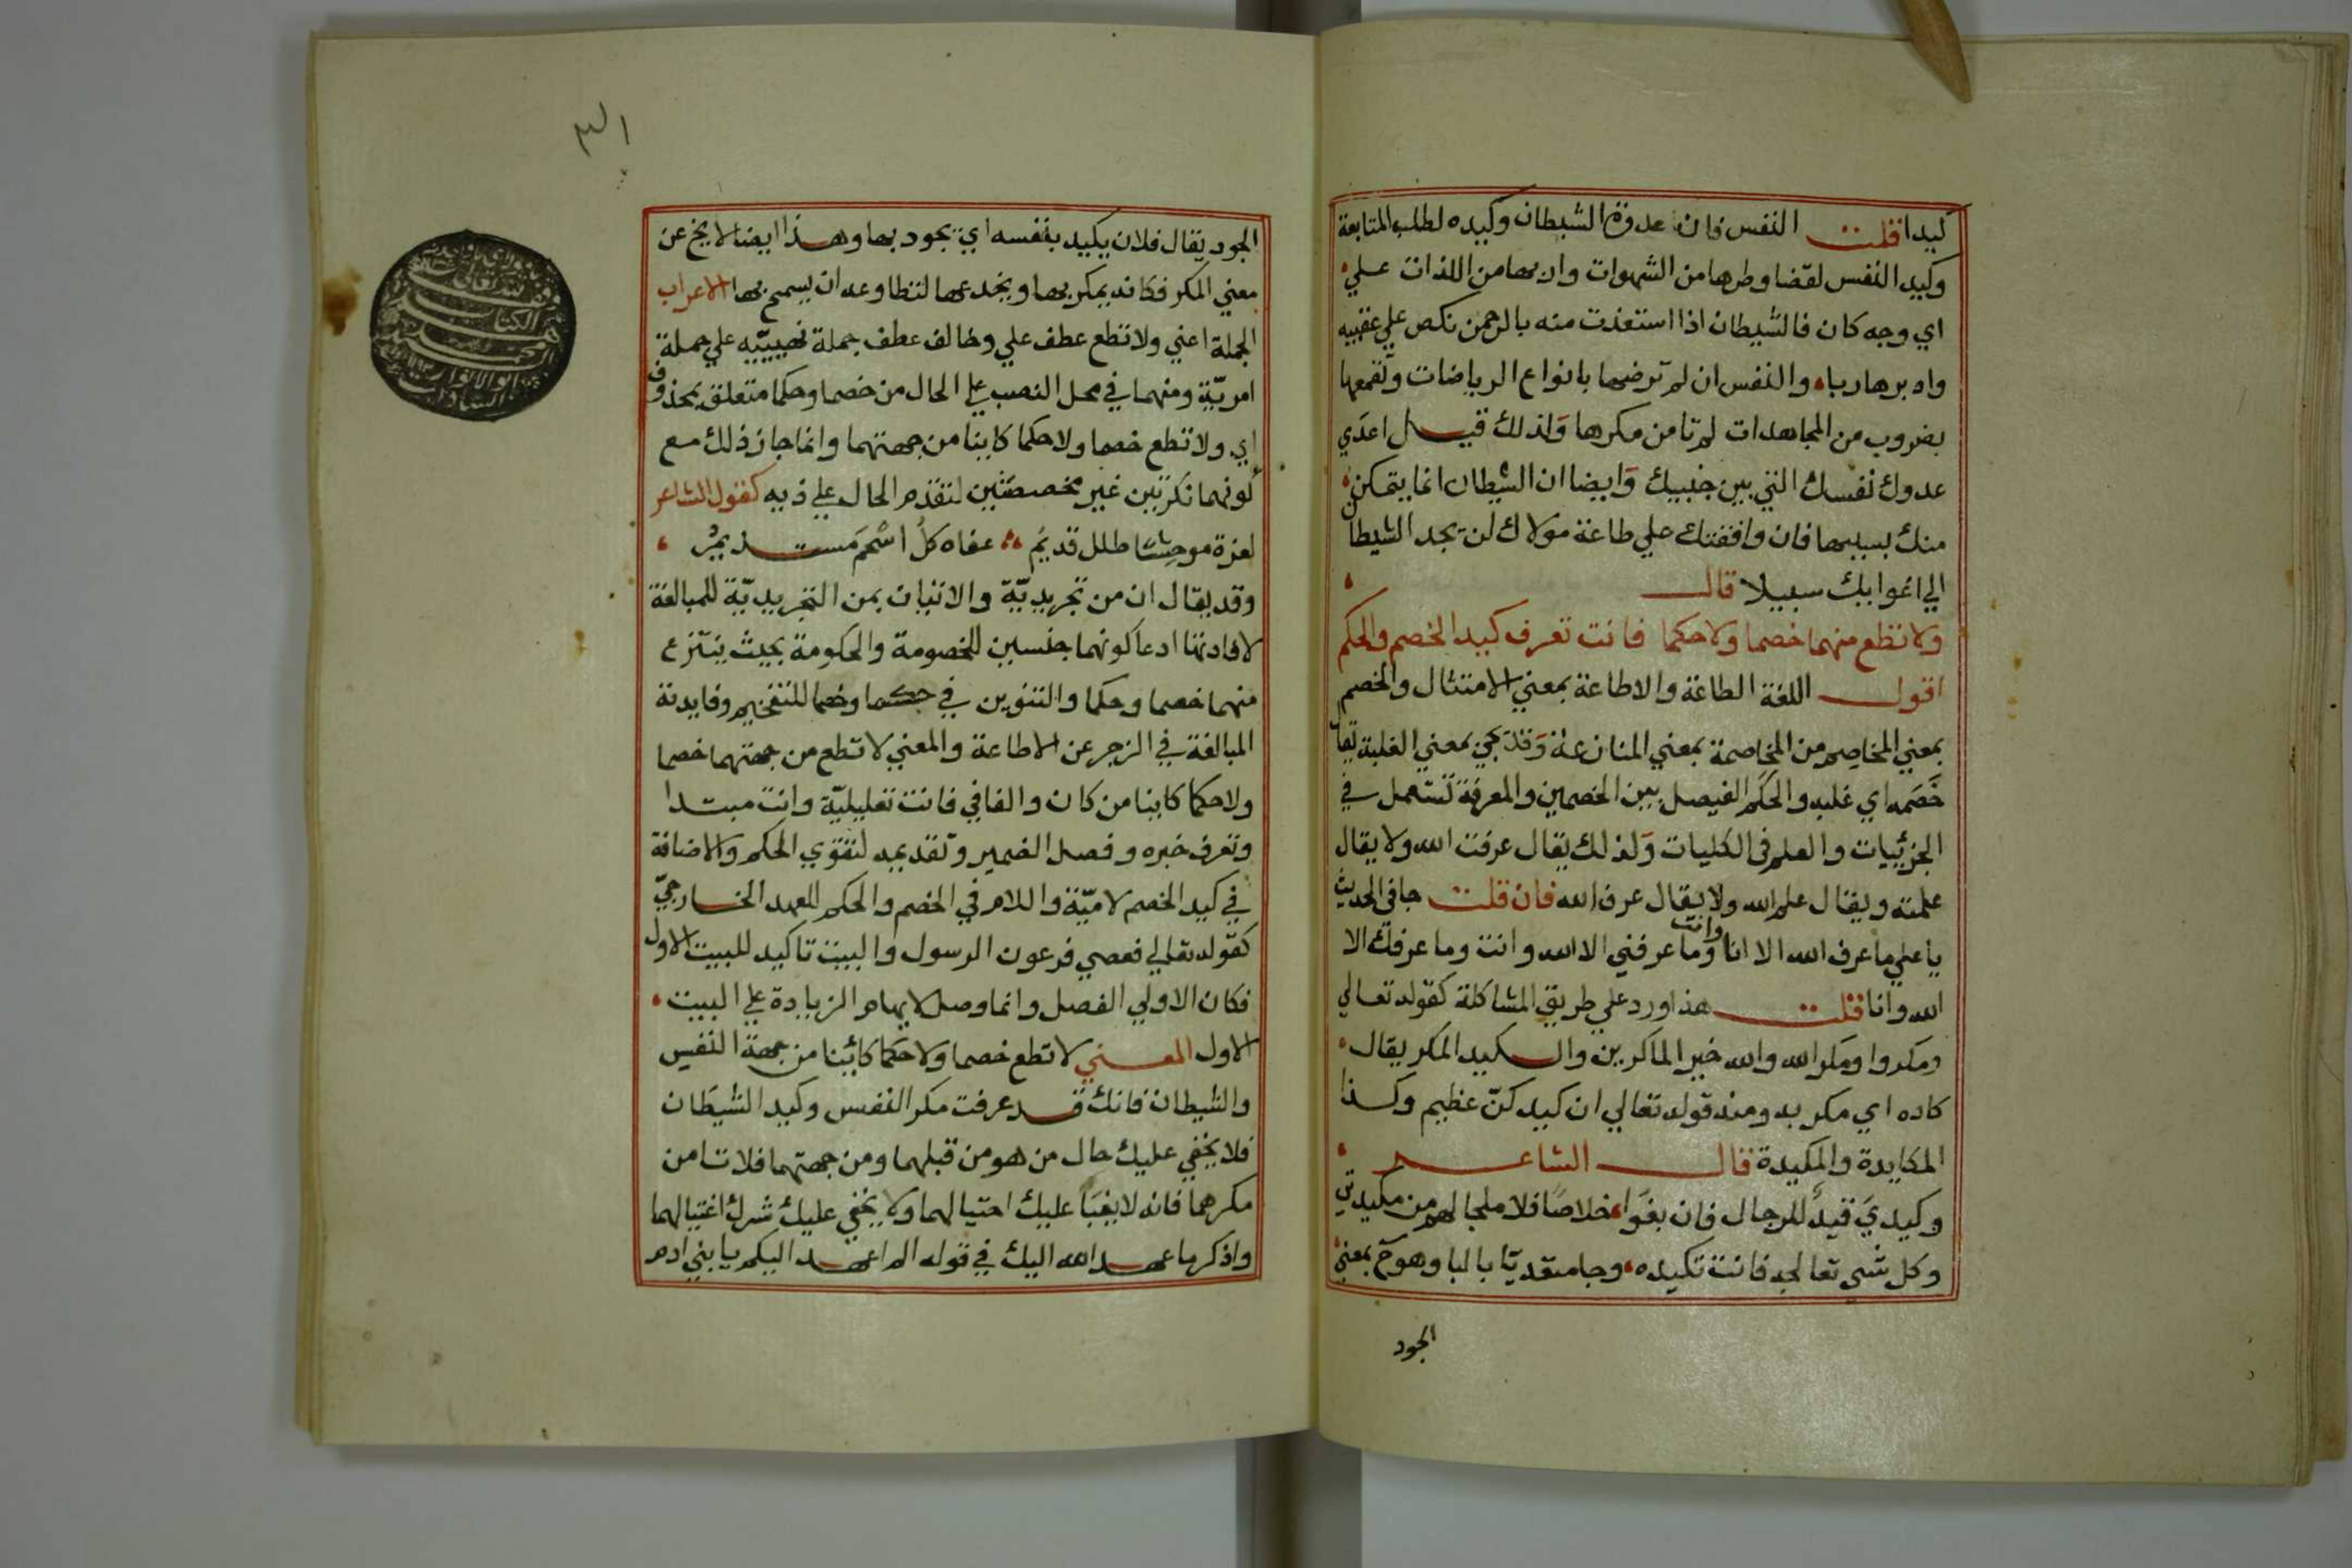 كيدا قلت النفس فان عدوة الشيطان وكيده لطلب المتابعة
وكيد النفس لقضا وطرها من الشهوات واربها من اللذات علي
اي وجه كان فالشيطان اذا استعذت منه بالرحمن نكص علي عقبيه
وادبر هاربا والنفس ان لم ترضها بانواع الرياضات وتقمعها
بضروب من المجاهدات لم تامن مكرها ولذلك قيل اعدي
عدوك نفسك التي بين جنبيك وايضا ان الشيطان انما يتمكن
منك بسببها فان وافقتك علي طاعة مولاك لن يجد الشيطان
الي اغوايك سبيلا قال
ولا تطع منهما خصما ولا حكما فانت تعرف كيد الخصم والحكم
اقول اللغة الطاعة والاطاعة بمعني الامتثال والخصم
بمعني المخاصم من المخاصمة بمعني المنازعة وقد يجئ بمعني الغلبة يقال
خصمه اي غلبه والحكم الفيصل بين الخصمين والمعرفة تستعمل في
الجزئيات والعلم في الكليات ولذلك يقال عرفت الله ولا يقال
علمته ويقال علم الله ولا يقال عرف الله فان قلت جا في الحديث
يا علي ما عرف الله الا انا وانت وما عرفني الا الله وانت وما عرفك الا
الله وانا قلت هذا ورد علي طريق المشاكلة كقوله تعالي
ومكروا ومكر الله والله خير الماكرين والكيد المكر يقال
كاده اي مكر به ومنه قوله تعالي ان كيدكن عظيم وكذا
المكايدة والمكيدة قال الشاعر
وكيدي قيد للرجال فان بغوا خلاصا فلا ملجا لهم من مكيدتي
وكل شي تعالجه فانت تكيده وجا متعديا بالبا وهو ح بمعني
الجود
الجود يقال فلان يكيد بنفسه اي يجود بها وهذا ايضا لا يخ عن
معني المكر فكانه يمكر بها ويخدعها لتطاوعه ان يسمح بها الاعراب
الجملة اعني ولا تطع عطف علي وخالف عطف جملة نهييه علي جملة
امرية ومنهما في محل النصب علي الحال من خصما وحكما متعلق بمحذوف
اي ولا تطع خصما ولا حكما كاينا من جهتهما وانما جاز ذلك مع
كونهما نكرتين غير مخصصتين لتقدم الحال علي ذيه كقول الشاعر
لعزة موحشا طلل قديم عفاه كل اسحم مستديم
وقد يقال ان من تجريدية والاتيان بمن التجريدية للمبالغة
لافادتها ادعا كونهما جنسين للخصومة والحكومة بحيث ينتزع
منهما خصما وحكما والتنوين في حكما وخصما للتفخيم وفايدته
المبالغة في الزجر عن الاطاعة والمعني لا تطع من جهتهما خصما
ولا حكما كاينا من كان والفا في فانت تعليلية وانت مبتدا
وتعرف خبره وفصل الضمير وتقديمه لتقوي الحكم والاضافة
في كيد الخصم لامية واللام في الخصم والحكم للعهد الخارجي
كقوله تعالي فعصي فرعون الرسول والبيت تاكيد للبيت الاول
فكان الاولي الفصل وانما وصل لايهام الزيادة علي البيت
الاول المعني لا تطع خصما ولا حكما كائنا من جهة النفس
والشيطان فانك قد عرفت مكر النفس وكيد الشيطان
فلا يخفي عليك حال من هو من قبلهما ومن جهتهما فلا تامن
مكرهما فانه لا يغبا عليك احتيالهما ولا يخفي عليك شرك اغتيالهما
واذكر ما عهد الله اليك في قوله الم اعهد اليكم يا بني ادم